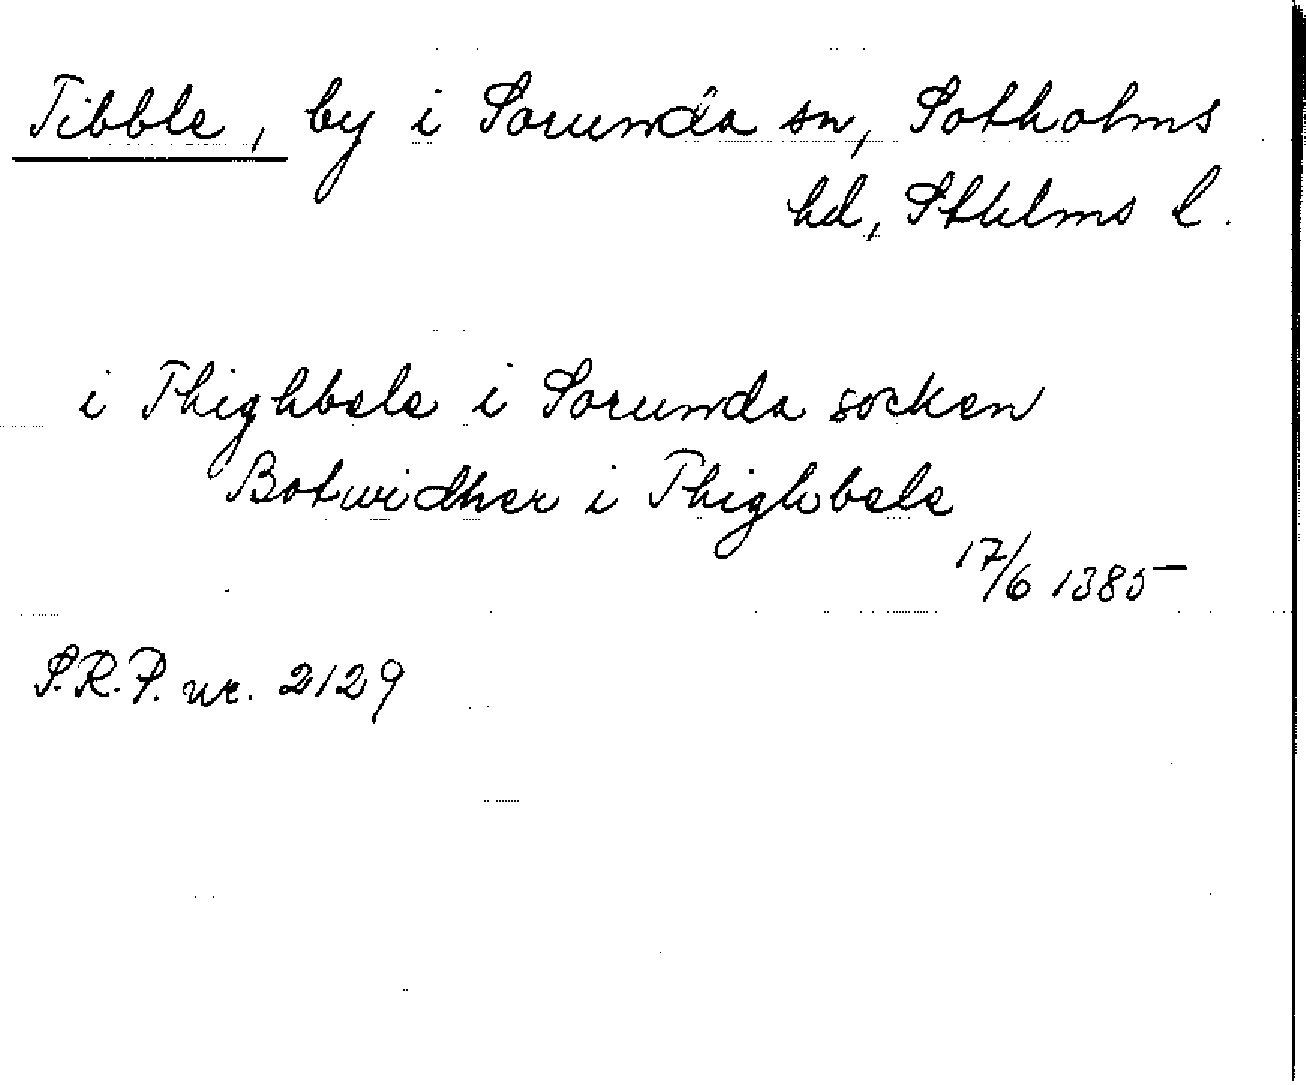 Tibble, by i Sorunda sn, Sotholms
hd, Sthlms l.
i Thighbele i Sorunda socken
Botwidher i Thighbele
17/6 1385
S.R.P. nr. 2129